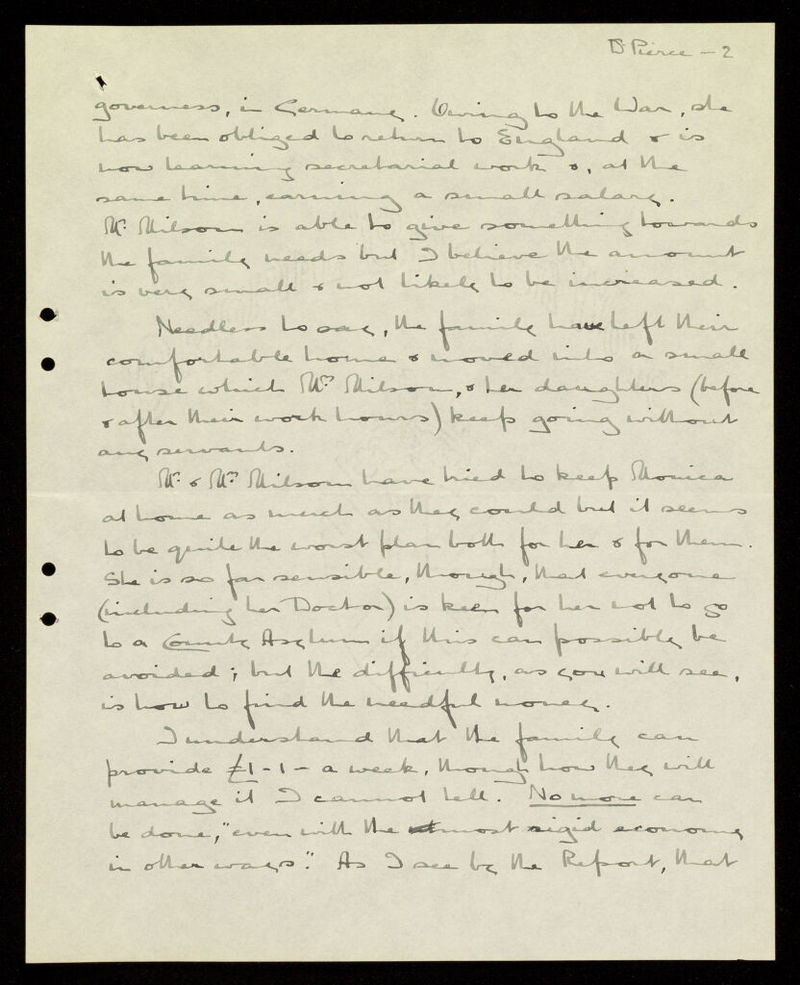 Dr Pierce – 2
governess, in Germany. Owing to the War, she
has been obliged to return to England & is
now learning secretarial work &, at the
same time, earning a small salary.
Mr. Milsom is able to give something towards
the family needs but I believe the amount
is very small & not likely to be increased.
Needless to say, the family have left their
comfortable home & moved into a small
house which Mrs Milsom, & her daughters (before
& after their work hours) keep going without
any servants.
Mr. & Mrs Milsom have tried to keep Monica
at home as much as they could but it seems
to be quite the worst plan both for her & for them.
She is so far sensible, though, that everyone
(including her Doctor) is keen for her not to go
to a County Asylum if this can possibly be
avoided; but the difficulty, as you will see,
is how to find the needful money.
I understand that the family can
provide £1-1- a week, though how they will
manage it I cannot tell. No more can
be done, "even with the most rigid economy
in other ways." As I see by the Report, that